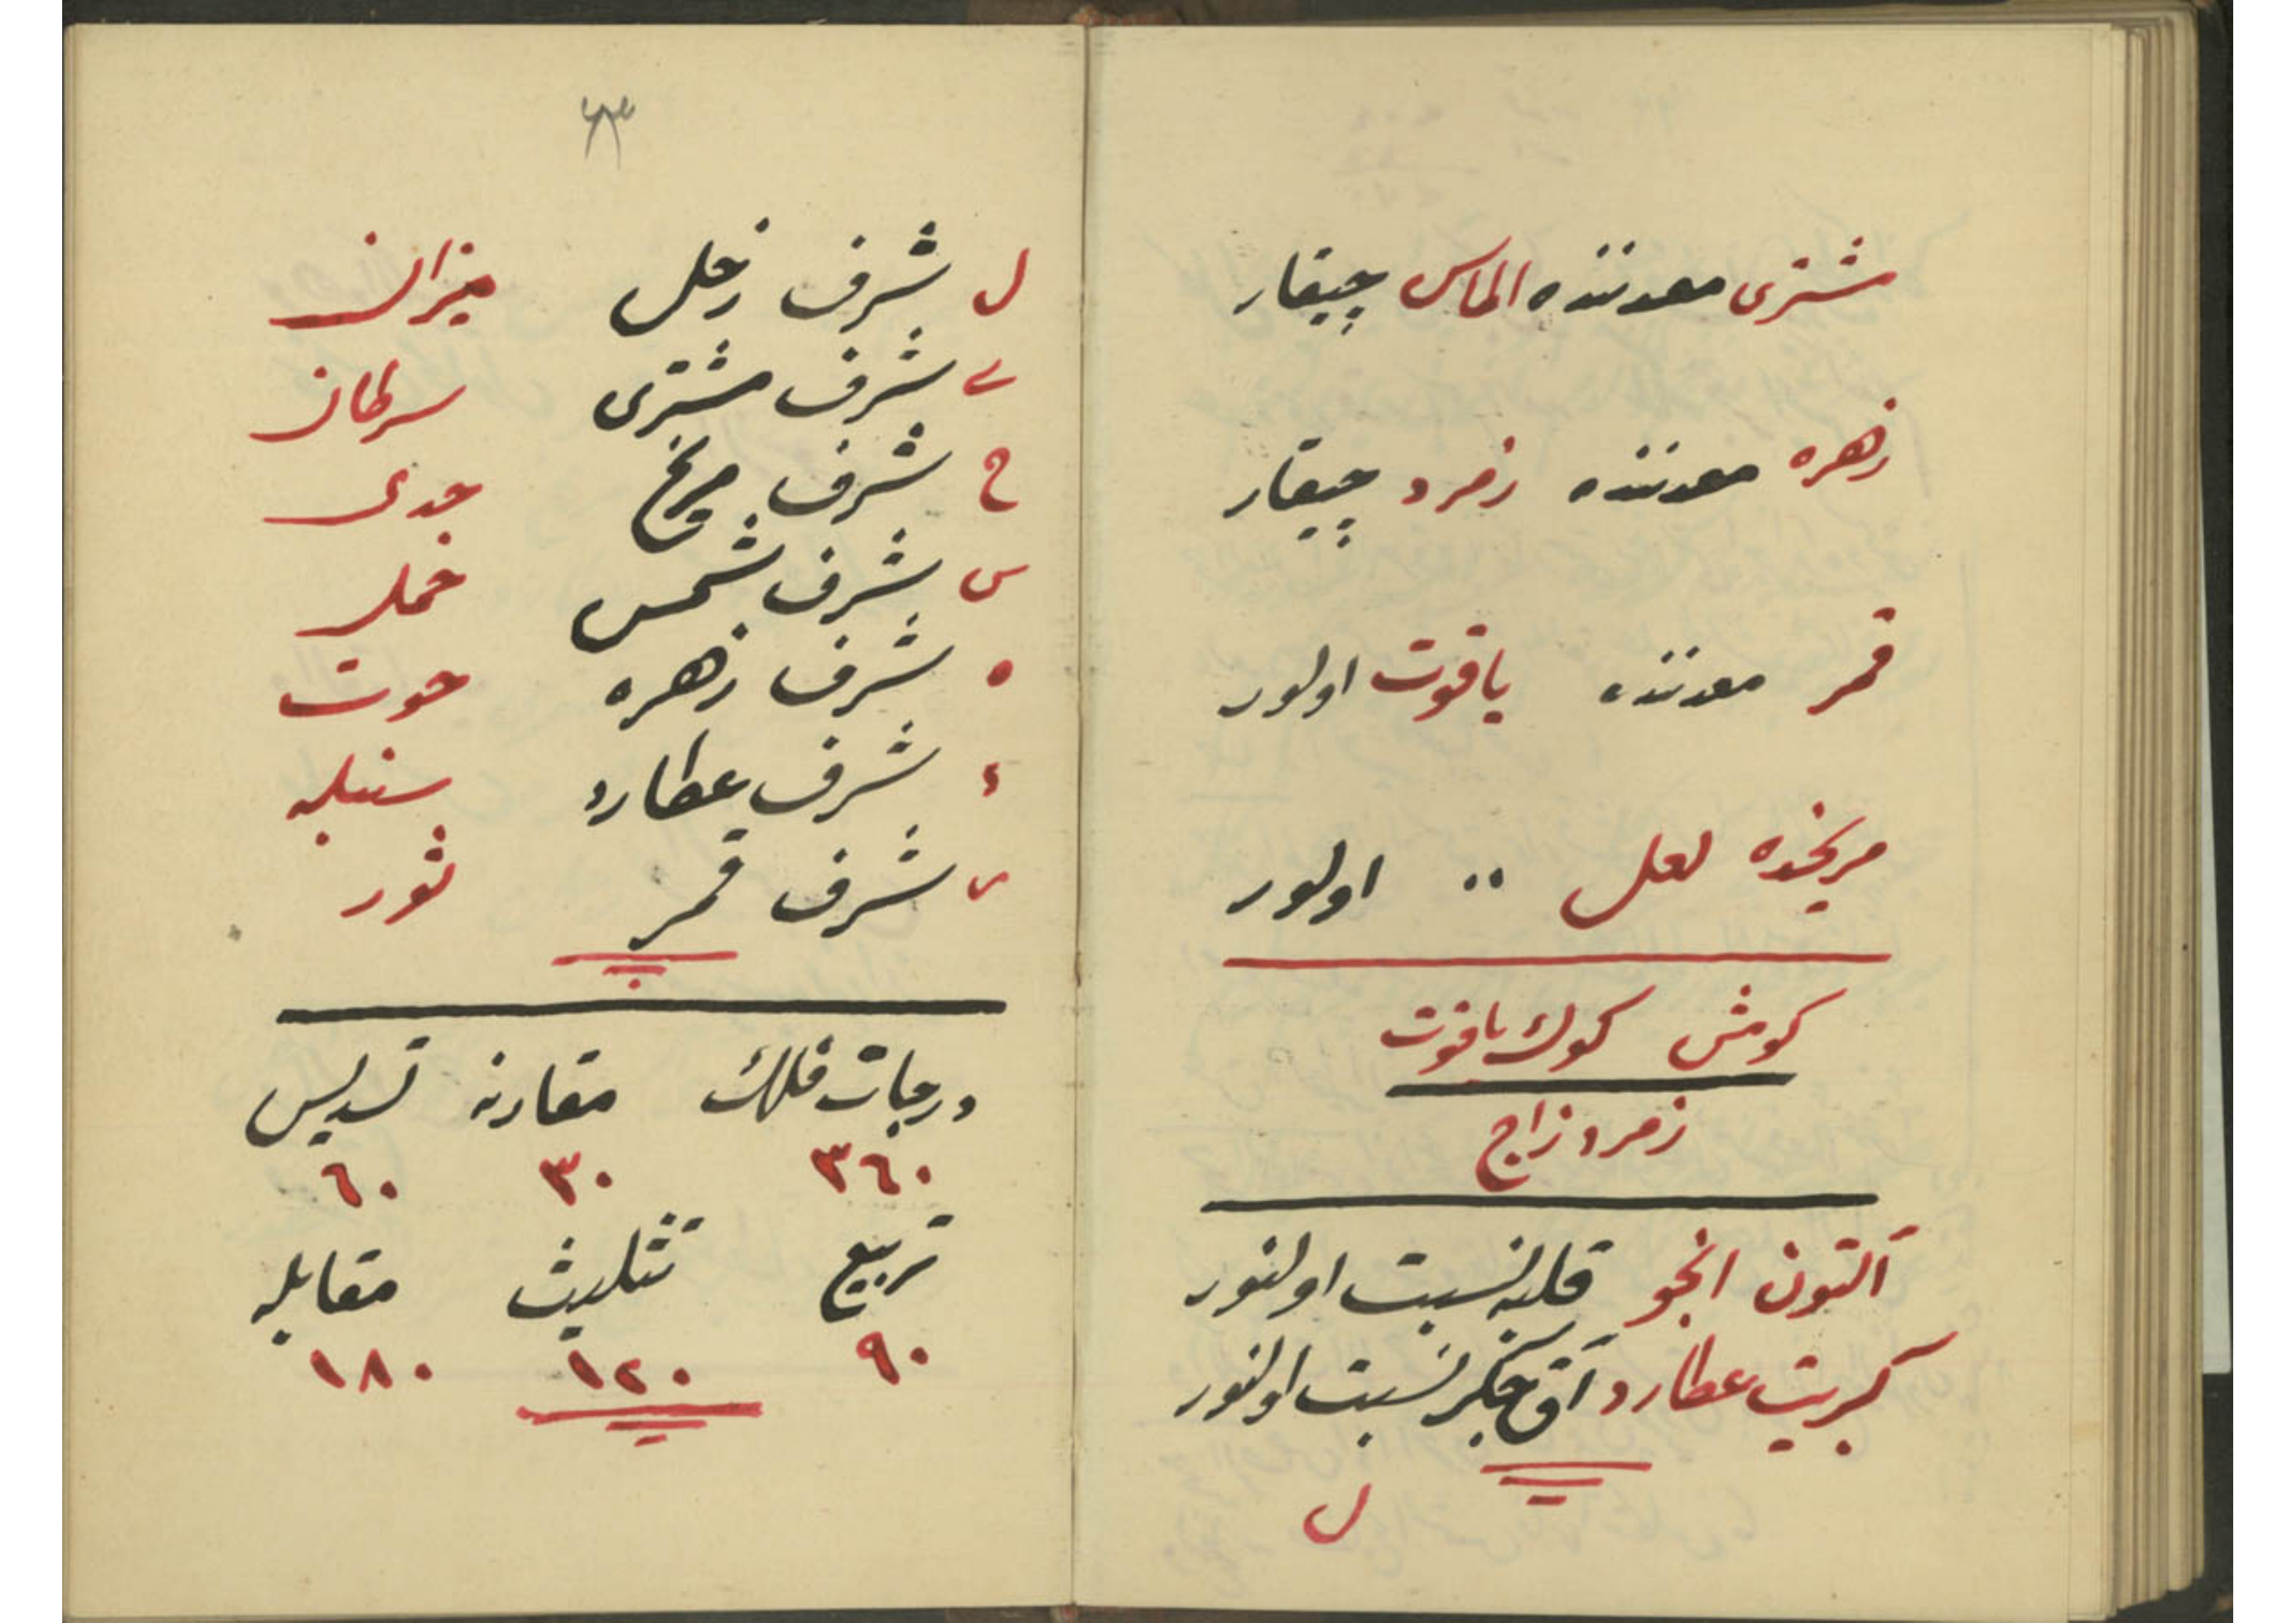 مشتری معدننده الماس چیقار
زهره معدننده زمرد چیقار
قمر معدننده یاقوت اولور
مریخده لعل ״ اولور
كومش كوك یاقوت
زمرد زاج
آلتون انجو قلبه نسبت اولنور
كبریت عطارد آق جكر نسبت اولنور
ل
٤٣
ل شرف زحل میزان
ی شرف مشتری سرطان
ح شرف مریخ جدی
س شرف شمس حمل
ه شرف زهره حوت
د شرف عطارد سنبله
ر شرف قمر ثور
درجات فلك مقارنه تسدیس
٣٦٠ ٣٠ ٦٠
تربیع تثلیث مقابله
٩٠ ١٢٠ ١٨٠